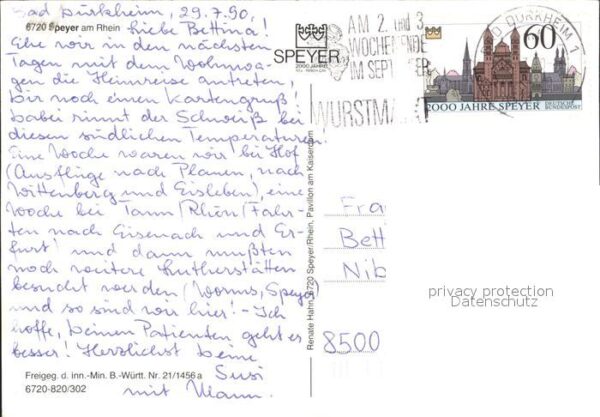 Bad Dürkheim, 29.7.90.
6720 Speyer am Rhein
Liebe Bettina!
Ehe wir in den nächsten
Tagen mit dem Wohnwa-
gen die Heimreise antreten,
Dir noch einen Kartengruß,
dabei rinnt der Schweiß bei
diesen südlichen Temperaturen.
Eine Woche waren wir bei Hof
(Ausflüge nach Plauen, nach
Wittenberg und Eisleben), eine
Woche bei Tann/Rhön (Fahr-
ten nach Eisenach und Er-
furt) und dann mußten
noch weitere Lutherstätten
besucht werden (Worms, Speyer)
und so sind wir hier! - Ich
hoffe, Deinen Patienten geht es
besser! Herzlichst Deine
Susi
mit Mann.
Freigeg. d. inn.-Min. B.-Württ. Nr. 21/1456 a
6720-820/302
Renate Hahn, 6720 Speyer/Rhein, Pavillon am Kaiserdom
SPEYER
2000 JAHRE
AM 2. und 3.
WOCHENENDE
IM SEPTEMBER
WURSTMARKT
BAD DÜRKHEIM 1
60
2000 JAHRE SPEYER
DEUTSCHE
BUNDESPOST
Fra
Bett
Nib
8500
privacy protection
Datenschutz